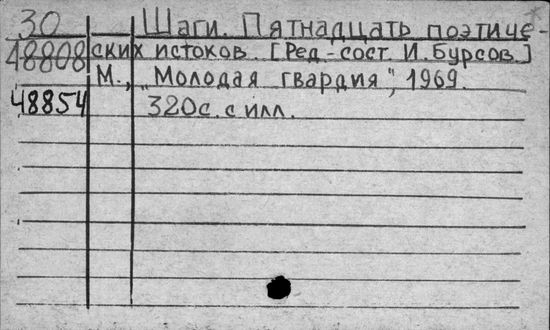 30 Шаги. Пятнадцать поэтиче-
48808 ских истоков. [Ред.-сост. И. Бурсов.]
М., „Молодая гвардия", 1969.
48854 320с. с илл.